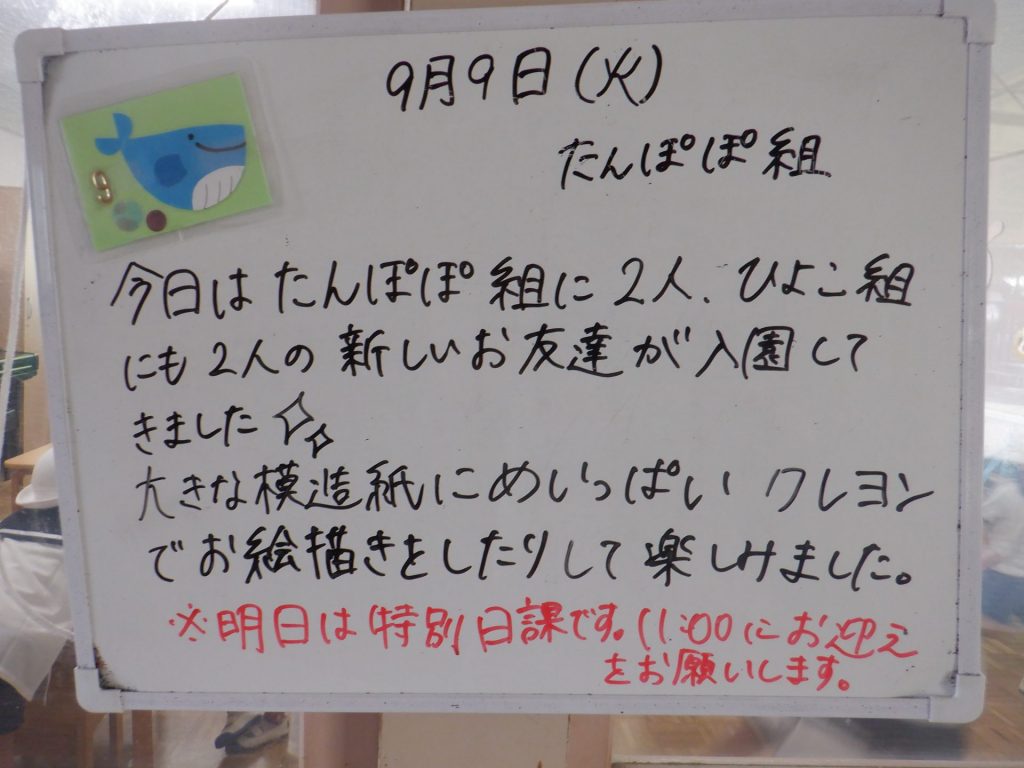 9月9日(火)
たんぽぽ組
9
今日はたんぽぽ組に2人、ひよこ組
にも2人の新しいお友達が入園して
きました
大きな模造紙にめいっぱいクレヨン
でお絵描きをしたりして楽しみました。
※明日は特別日課です。11:00にお迎え
をお願いします。